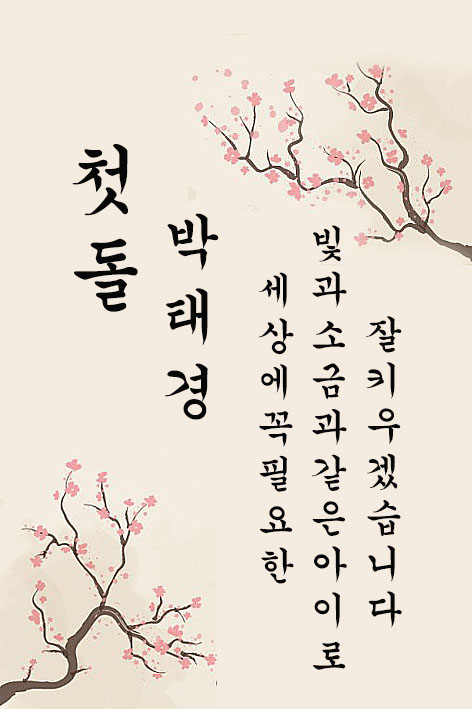 첫돌
박태경
세상에꼭필요한
빛과소금과같은아이로
잘키우겠습니다